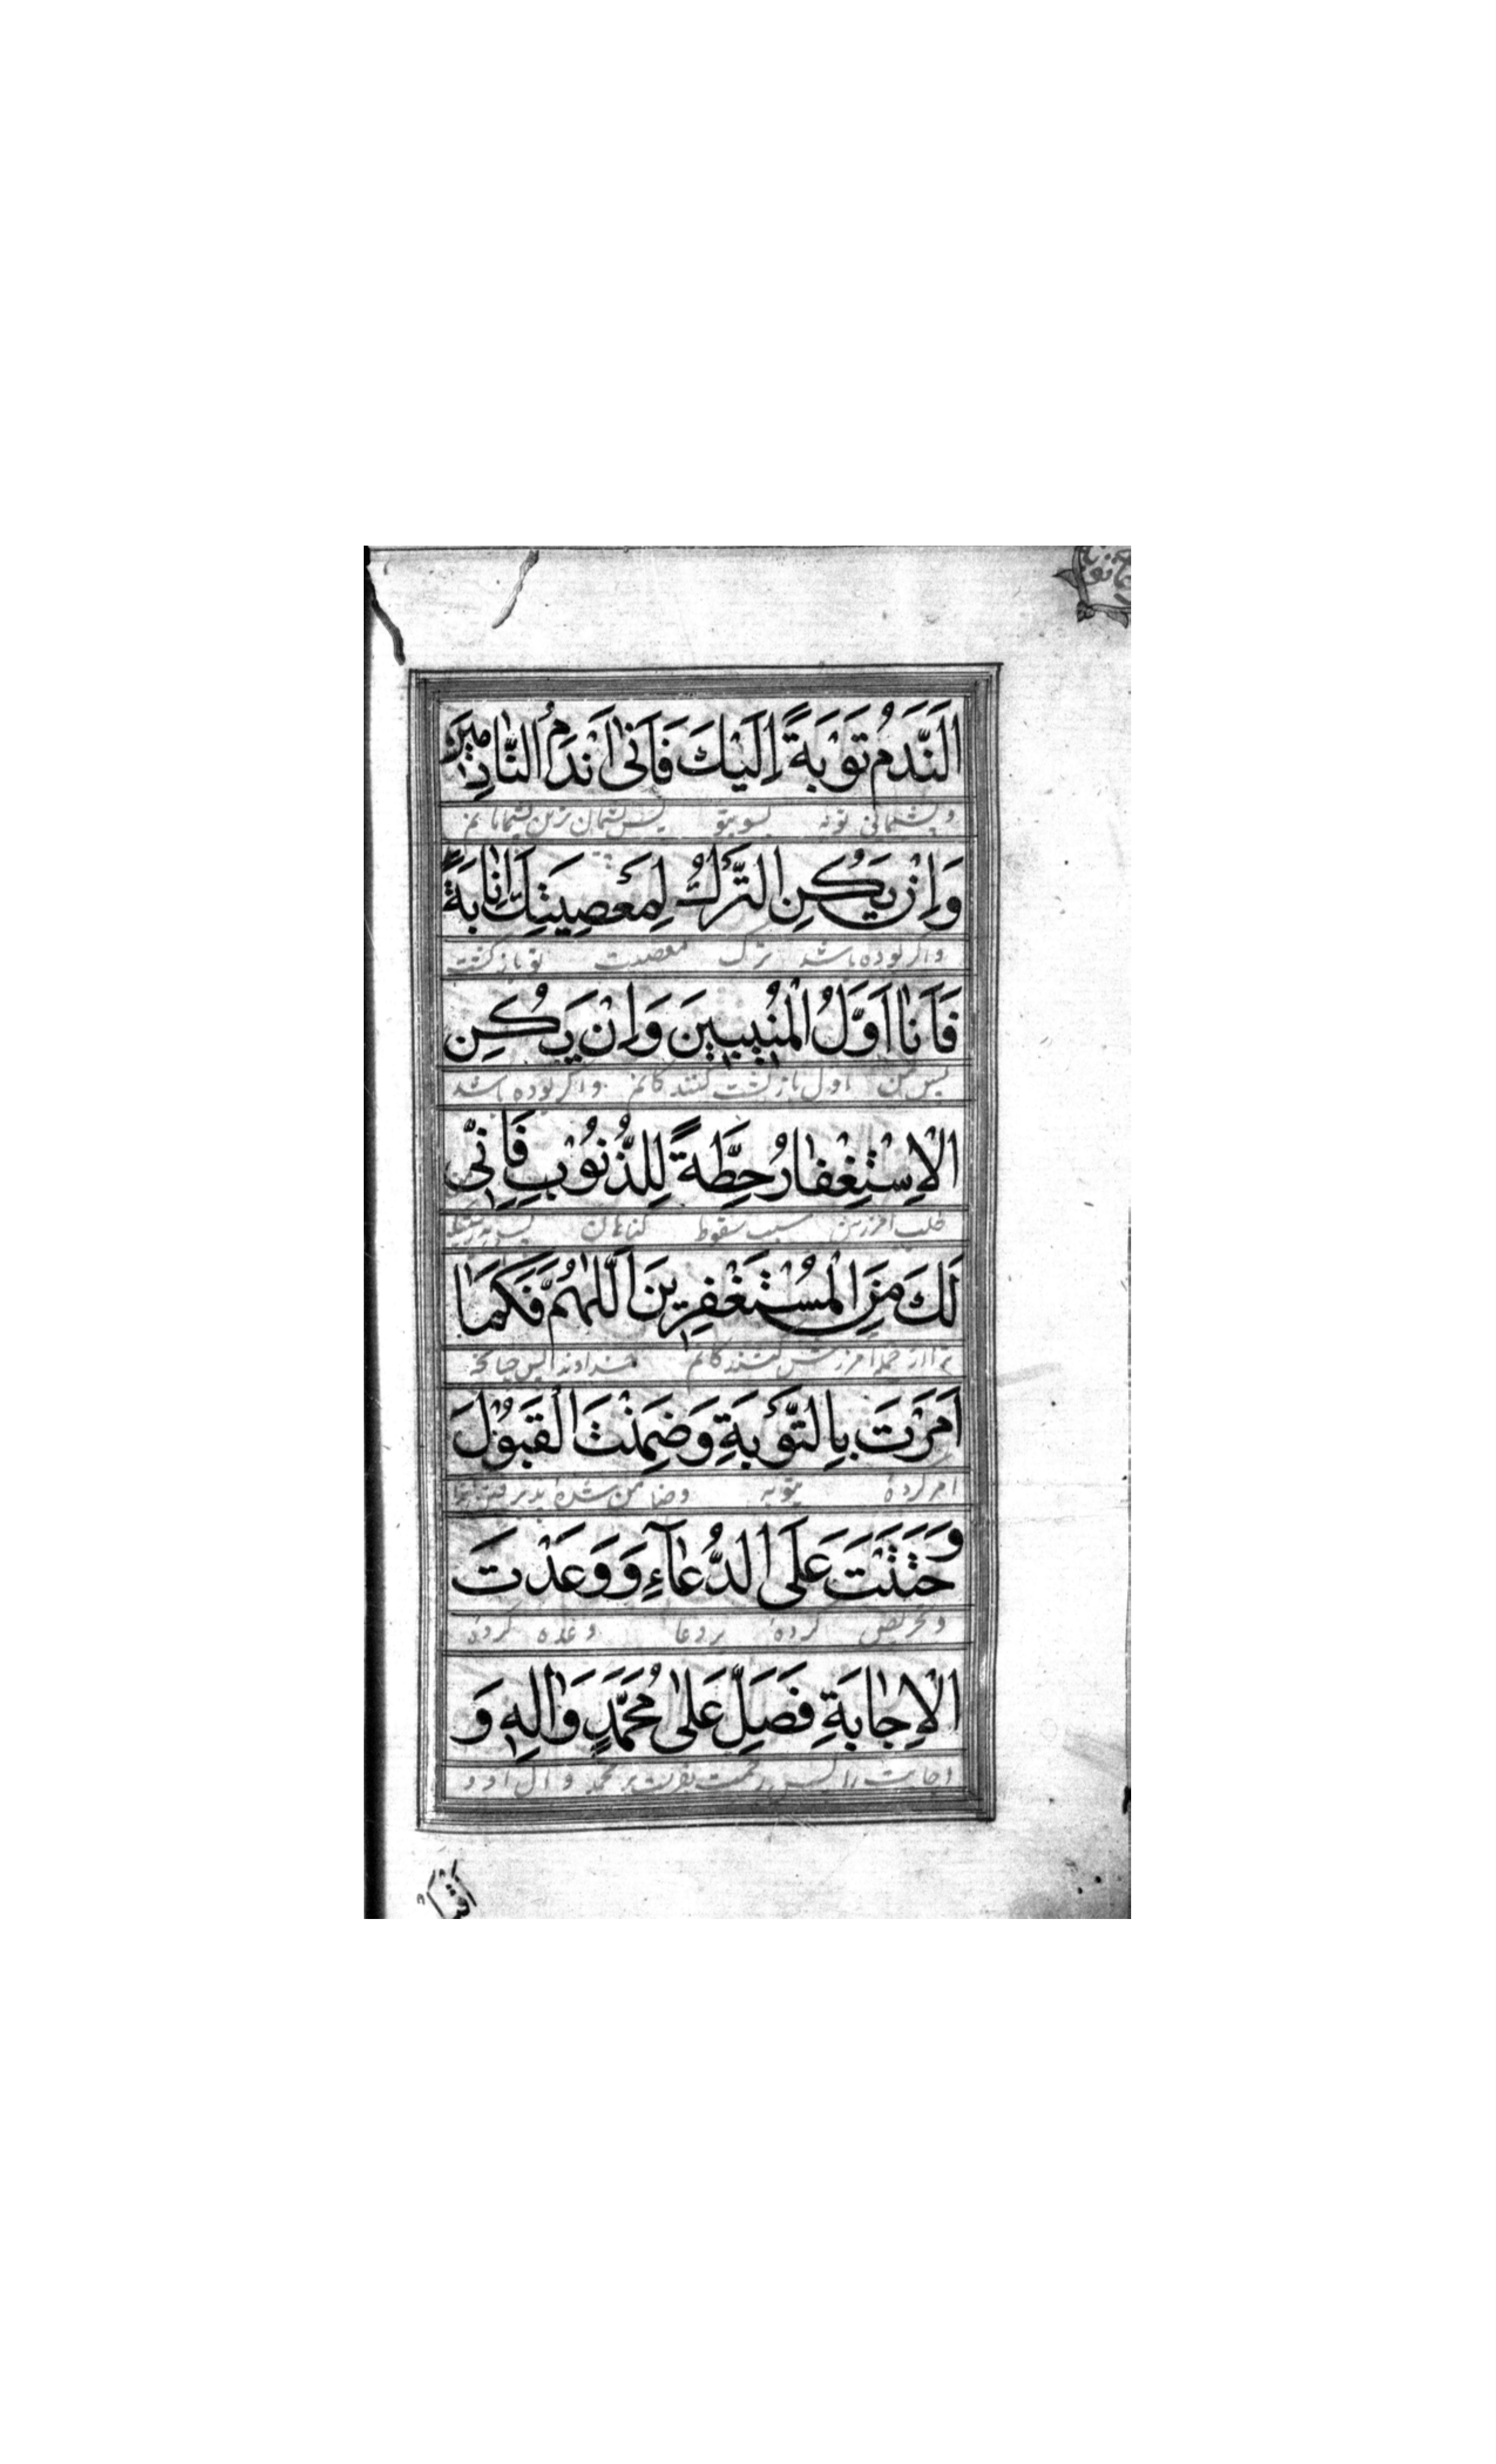 اَلنَّدَمُ تَوْبَةً اِلَيْكَ فَاَنَا اَنْدَمُ النَّادِمينَ
و پشیمانی توبه بسوی تو پس پشیمان ترین پشیمانانم
وَاِنْ يَكُنِ التَّرْكُ لِمَعْصِيَتِكَ اِنابَةً
و اگر بوده باشد ترک معصیت تو بازگشت
فَاَنَا اَوَّلُ الْمُنيبينَ وَاِنْ يَكُنِ
پس من اول بازگشت کنندگانم و اگر بوده باشد
الْاِسْتِغْفارُ حِطَّةً لِلذُّنُوْبِ فَاِنّي
طلب آمرزش سبب سقوط گناهان
لَكَ مِنَ الْمُسْتَغْفِرينَ اَللّٰهُمَّ فَكَما
ترا از جمله آمرزش کنندگانم خداوندا پس چنانچه
اَمَرْتَ بِالتَّوْبَةِ وَضَمِنْتَ الْقَبُوْلَ
امر کردهٔ بتوبه و ضامن شدهٔ پذیرفتن را
وَحَثَثْتَ عَلَى الدُّعآءِ وَوَعَدْتَ
و تحریص کردهٔ بر دعا و وعده کردهٔ
الْاِجابَةِ فَصَلِّ عَلىٰ مُحَمَّدٍ وَاٰلِهِ وَ
اجابت را پس رحمت بفرست بر محمد و آل او و